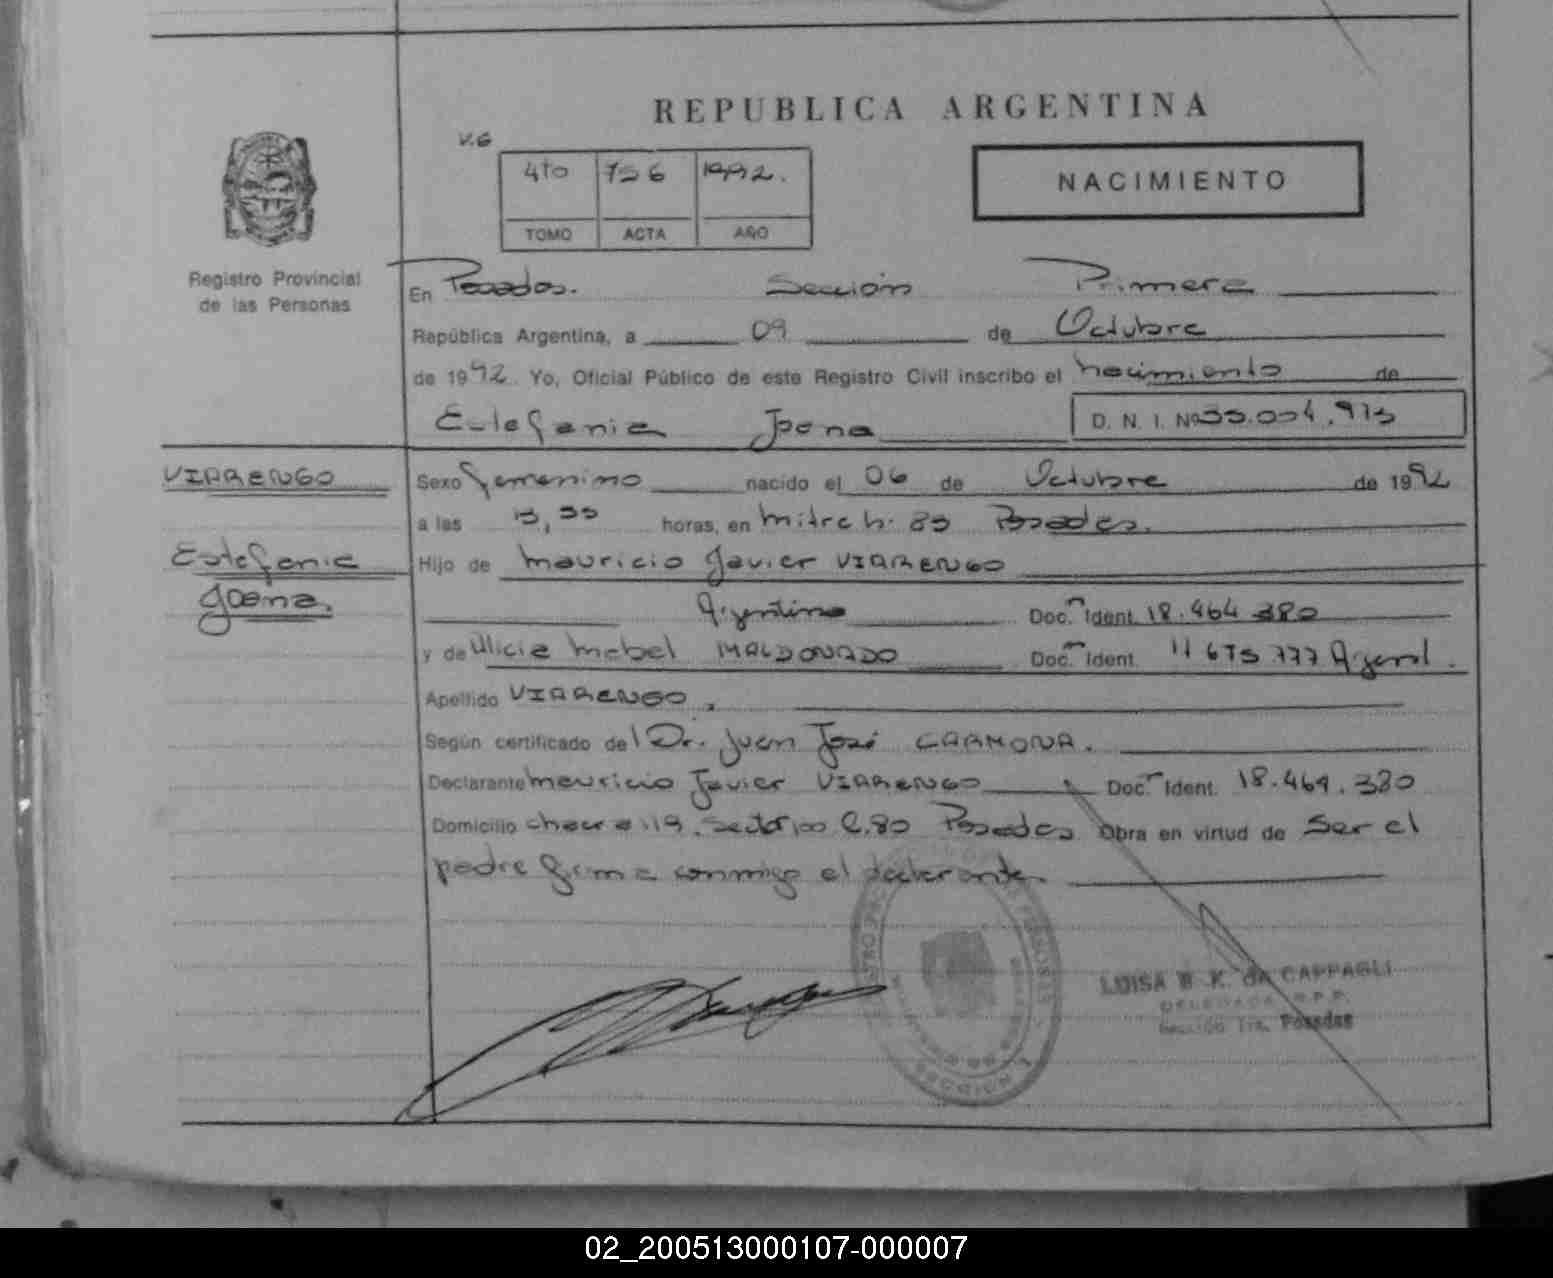 REPUBLICA ARGENTINA
V.G
4to 756 1992.
TOMO ACTA AÑO
NACIMIENTO
Registro Provincial
de las Personas
En Posadas. Sección Primera
República Argentina, a 09 de Octubre
de 1992. Yo, Oficial Público de este Registro Civil inscribo el nacimiento de
Estefania Joana D. N. I. Nº
VIARENGO
Estefania
Joana.
Sexo femenino nacido el 06 de Octubre de 1992
a las horas, en Mitre h. 89 Posadas.
Hijo de Mauricio Javier VIARENGO
Argentino Doc. Ident. 18.464.380
y de Alicia Mabel MALDONADO Doc. Ident. 11 675 777 Argent.
Apellido VIARENGO.
Según certificado del Dr. Juan José CARMONA.
Declarante Mauricio Javier VIARENGO Doc. Ident. 18.464.380
Domicilio chacra 119. Sector 100 C.80 Posadas Obra en virtud de Ser el
padre firma conmigo el declarante.
LUISA B. K. de CAPPAGLI
DELEGADA R.P.P.
Sección 1ra. Posadas
SECCION 1
02_200513000107-000007